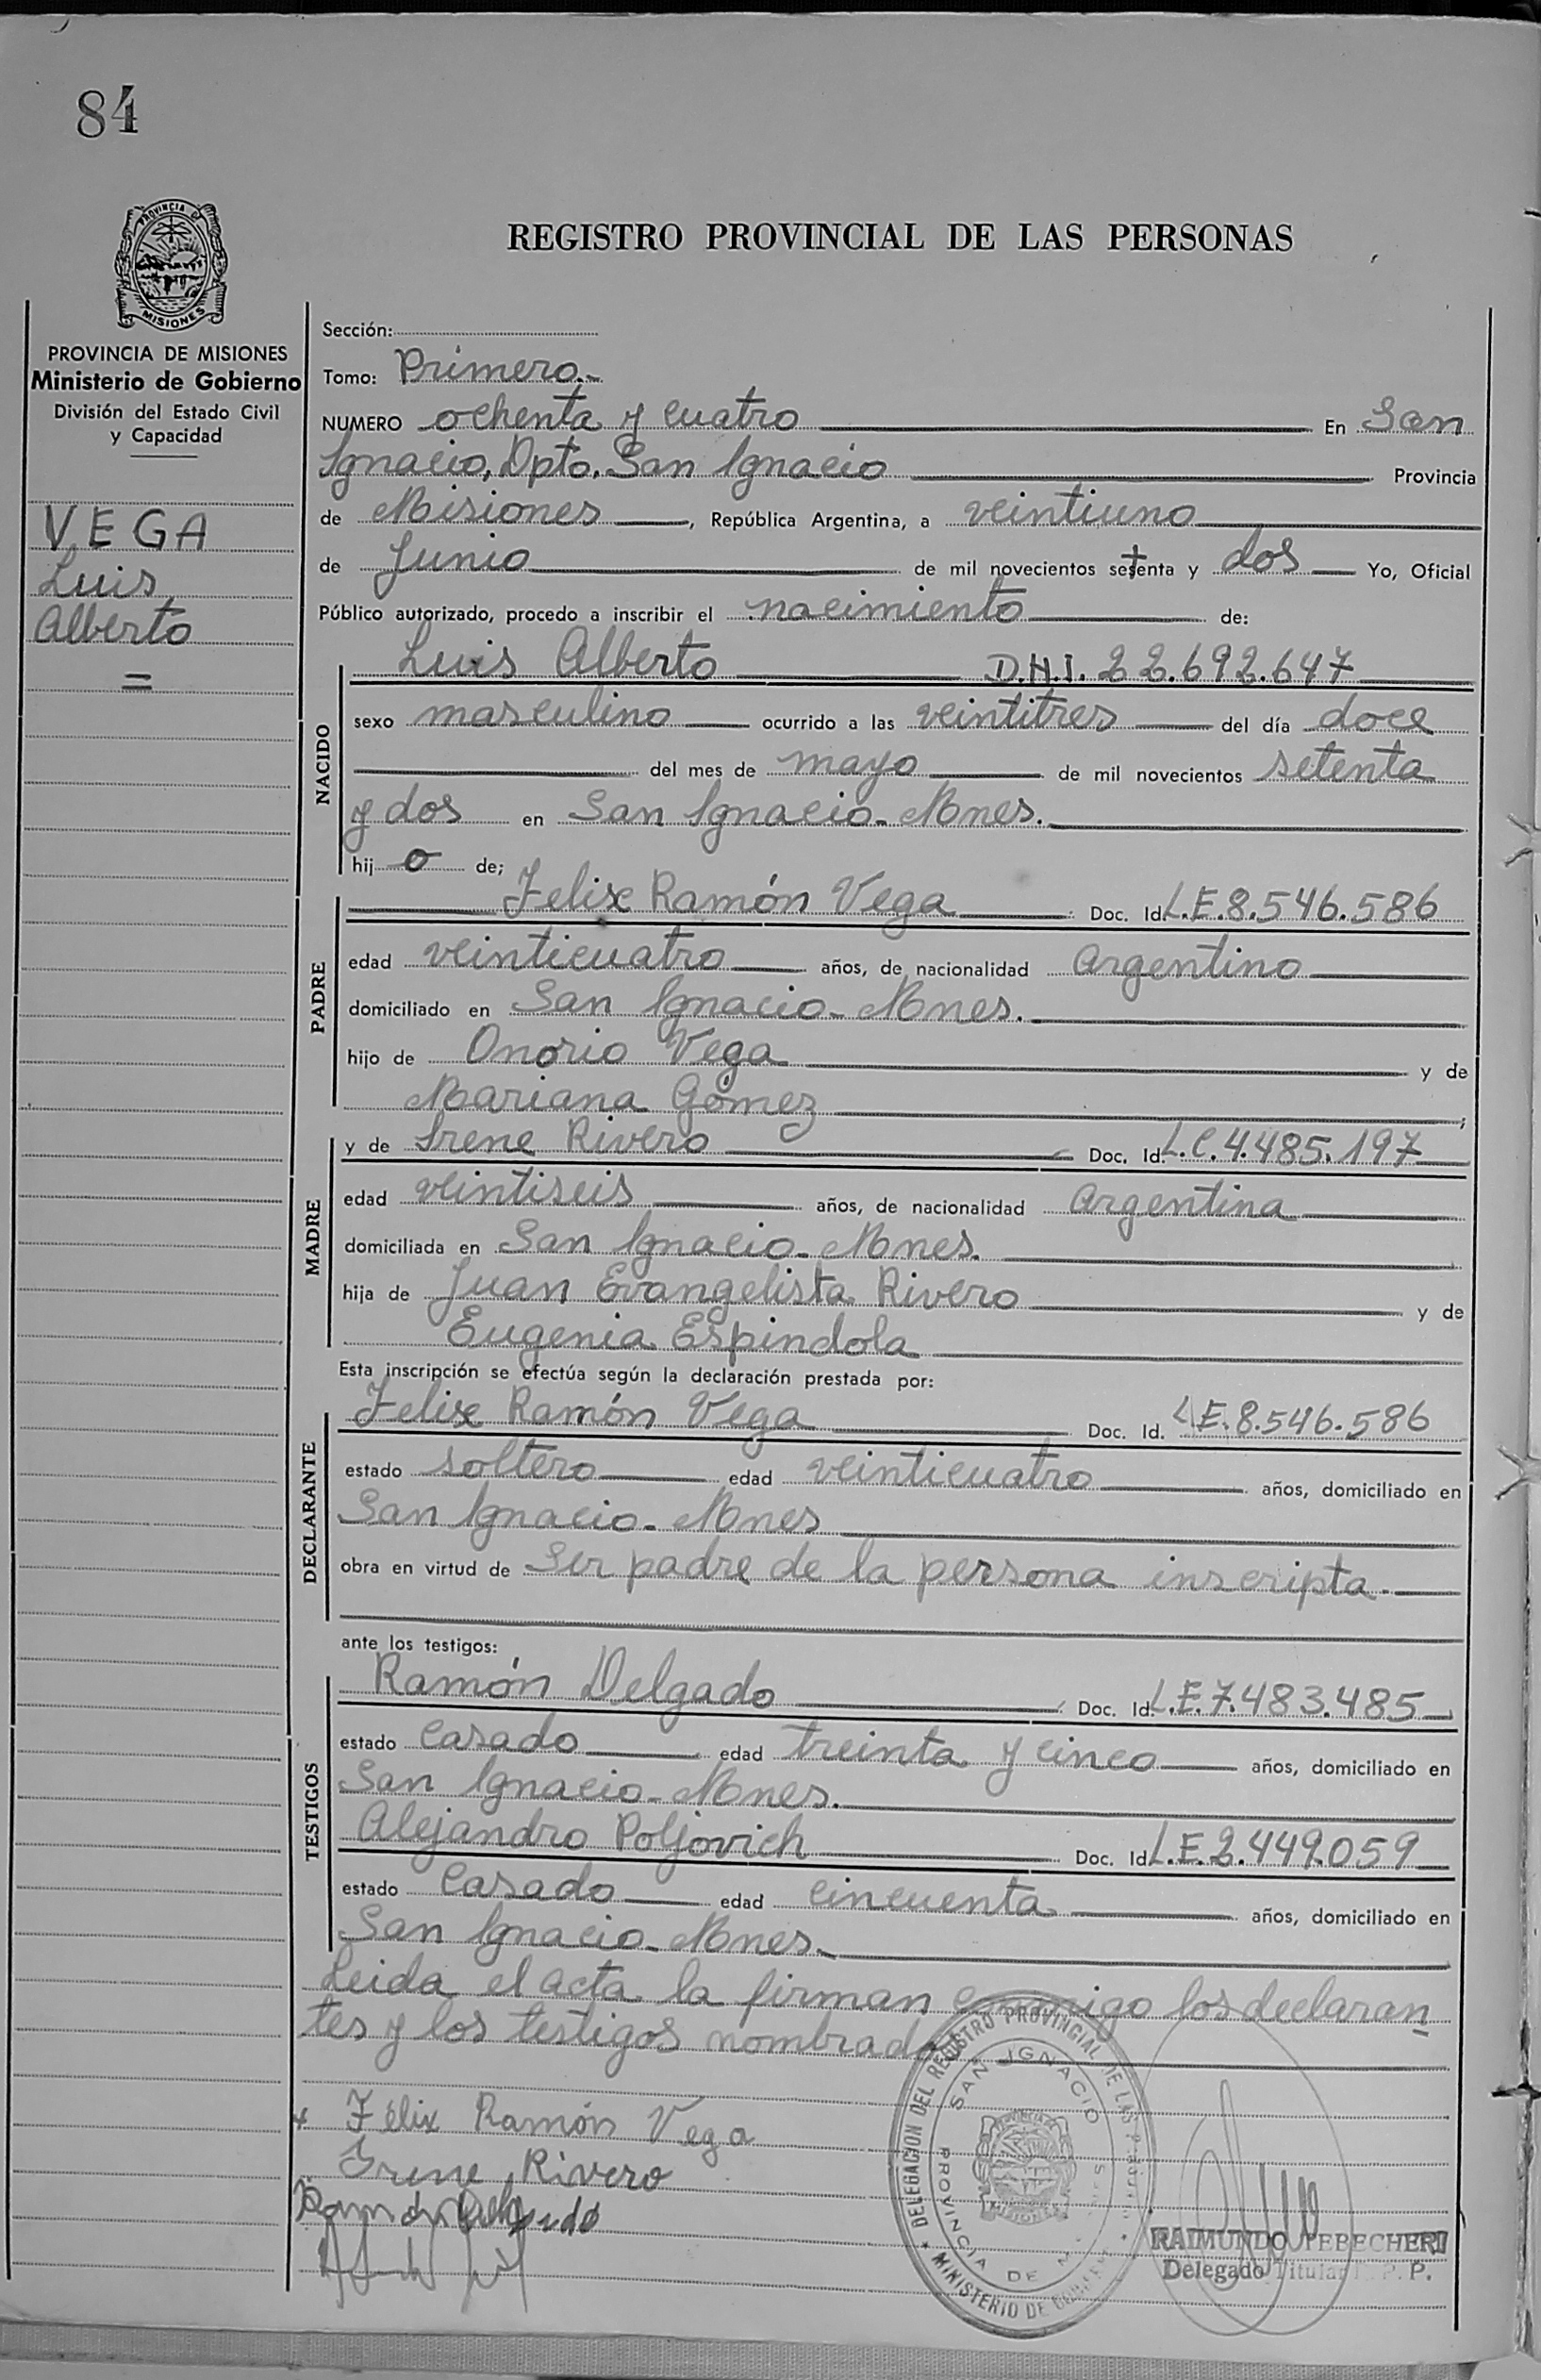 84
PROVINCIA DE
MISIONES
REGISTRO PROVINCIAL DE LAS PERSONAS
PROVINCIA DE MISIONES
Ministerio de Gobierno
División del Estado Civil
y Capacidad
VEGA
Luis
Alberto
=
Sección:
Tomo: Primero.-
NUMERO ochenta y cuatro En San
Ignacio, Dpto. San Ignacio Provincia
de Misiones, República Argentina, a veintiuno
de Junio de mil novecientos setenta y dos Yo, Oficial
Público autorizado, procedo a inscribir el nacimiento de:
Luis Alberto D.N.I. 22.692.647
NACIDO
sexo masculino ocurrido a las veintitres del día doce
del mes de mayo de mil novecientos setenta
y dos en San Ignacio - Mnes.
hij o de;
Felix Ramón Vega Doc. Id. L.E.8.546.586
PADRE
edad veinticuatro años, de nacionalidad Argentino
domiciliado en San Ignacio - Mnes.
hijo de Onorio Vega y de
Mariana Gómez;
y de Irene Rivero Doc. Id. L.C.4.485.197
MADRE
edad veintiseis años, de nacionalidad Argentina
domiciliada en San Ignacio - Mnes.
hija de Juan Evangelista Rivero y de
Eugenia Espindola
Esta inscripción se efectúa según la declaración prestada por:
Felix Ramón Vega Doc. Id. L.E.8.546.586
DECLARANTE
estado soltero edad veinticuatro años, domiciliado en
San Ignacio - Mnes
obra en virtud de Ser padre de la persona inscripta.
ante los testigos:
Ramón Delgado Doc. Id. L.E.7.483.485
TESTIGOS
estado Casado edad treinta y cinco años, domiciliado en
San Ignacio - Mnes.
Alejandro Poljovich Doc. Id. L.E.2.449.059
estado Casado edad cincuenta años, domiciliado en
San Ignacio - Mnes.
Leida el acta la firman conmigo los declaran
tes y los testigos nombrados
Félix Ramón Vega
Irene Rivero
Ramón Delgado
DELEGACION DEL REGISTRO PROVINCIAL DE LAS
MINISTERIO DE
SAN IGNACIO
PROVINCIA DE
RAIMUNDO PEBECHERI
Delegado Titular P. P.